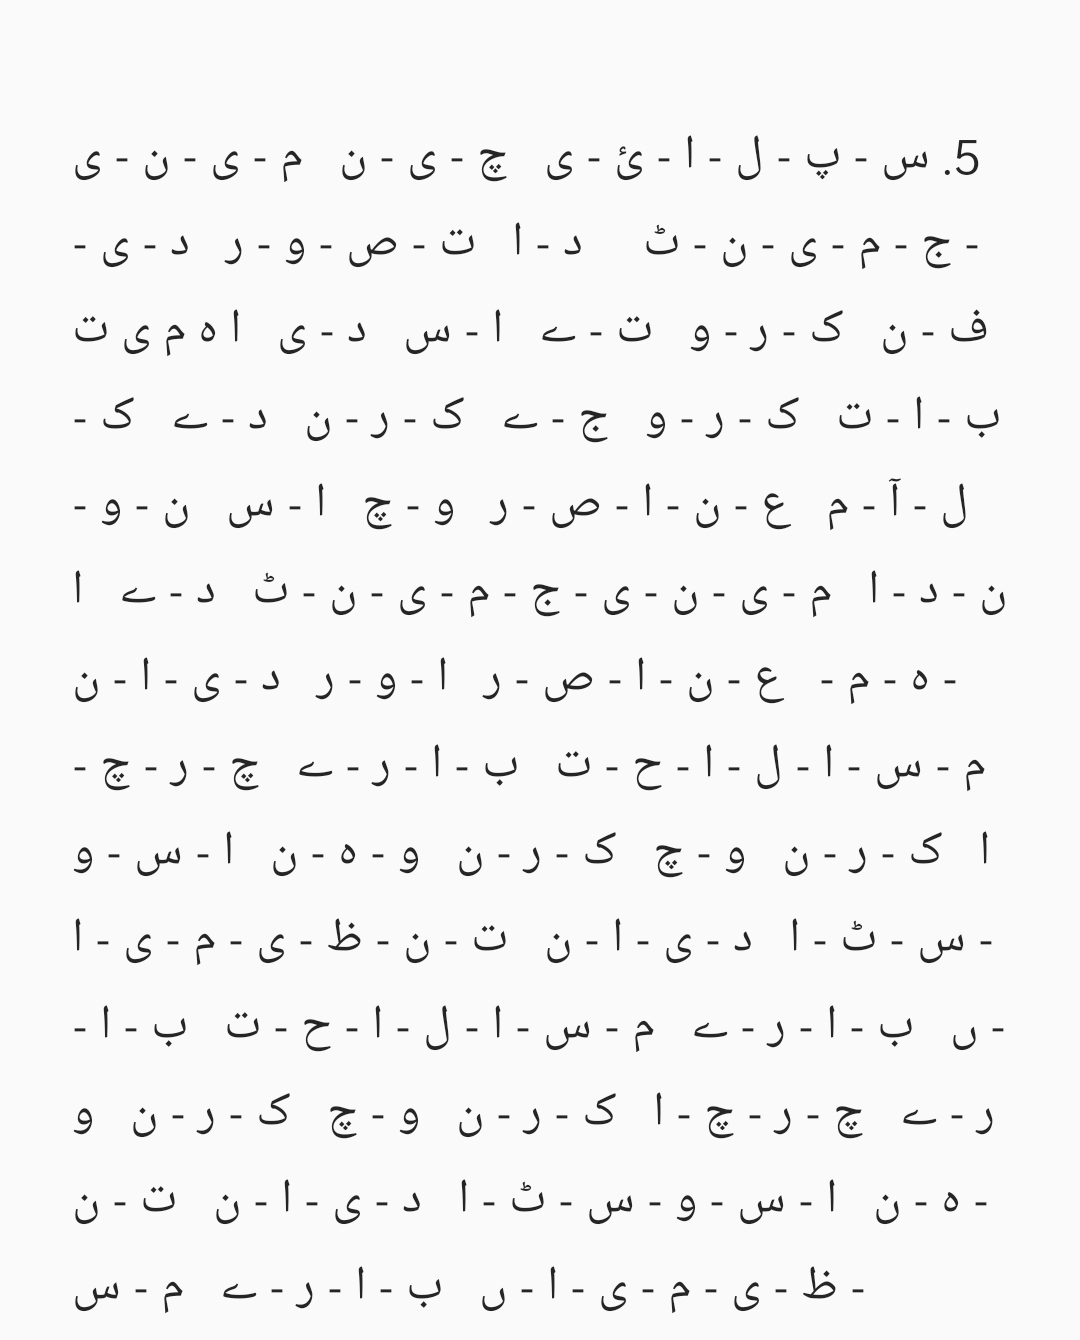 5. س - پ - ل - ا - ئ - ی چ - ی - ن م - ی - ن - ی
- ج - م - ی - ن - ٹ د - ا ت - ص - و - ر د - ی -
ف - ن ک - ر - و ت - ے ا - س د - ی ا ہ م ی ت
ب - ا - ت ک - ر - و ج - ے ک - ر - ن د - ے ک -
ل - آ - م ع - ن - ا - ص - ر و - چ ا - س ن - و -
ن - د - ا م - ی - ن - ی - ج - م - ی - ن - ٹ د - ے ا
- ہ - م - ع - ن - ا - ص - ر ا - و - ر د - ی - ا - ن
م - س - ا - ل - ا - ح - ت ب - ا - ر - ے چ - ر - چ -
ا ک - ر - ن و - چ ک - ر - ن و - ہ - ن ا - س - و
- س - ٹ - ا د - ی - ا - ن ت - ن - ظ - ی - م - ی - ا
- ں ب - ا - ر - ے م - س - ا - ل - ا - ح - ت ب - ا -
ر - ے چ - ر - چ - ا ک - ر - ن و - چ ک - ر - ن و
- ہ - ن ا - س - و - س - ٹ - ا د - ی - ا - ن ت - ن
- ظ - ی - م - ی - ا - ں ب - ا - ر - ے م - س